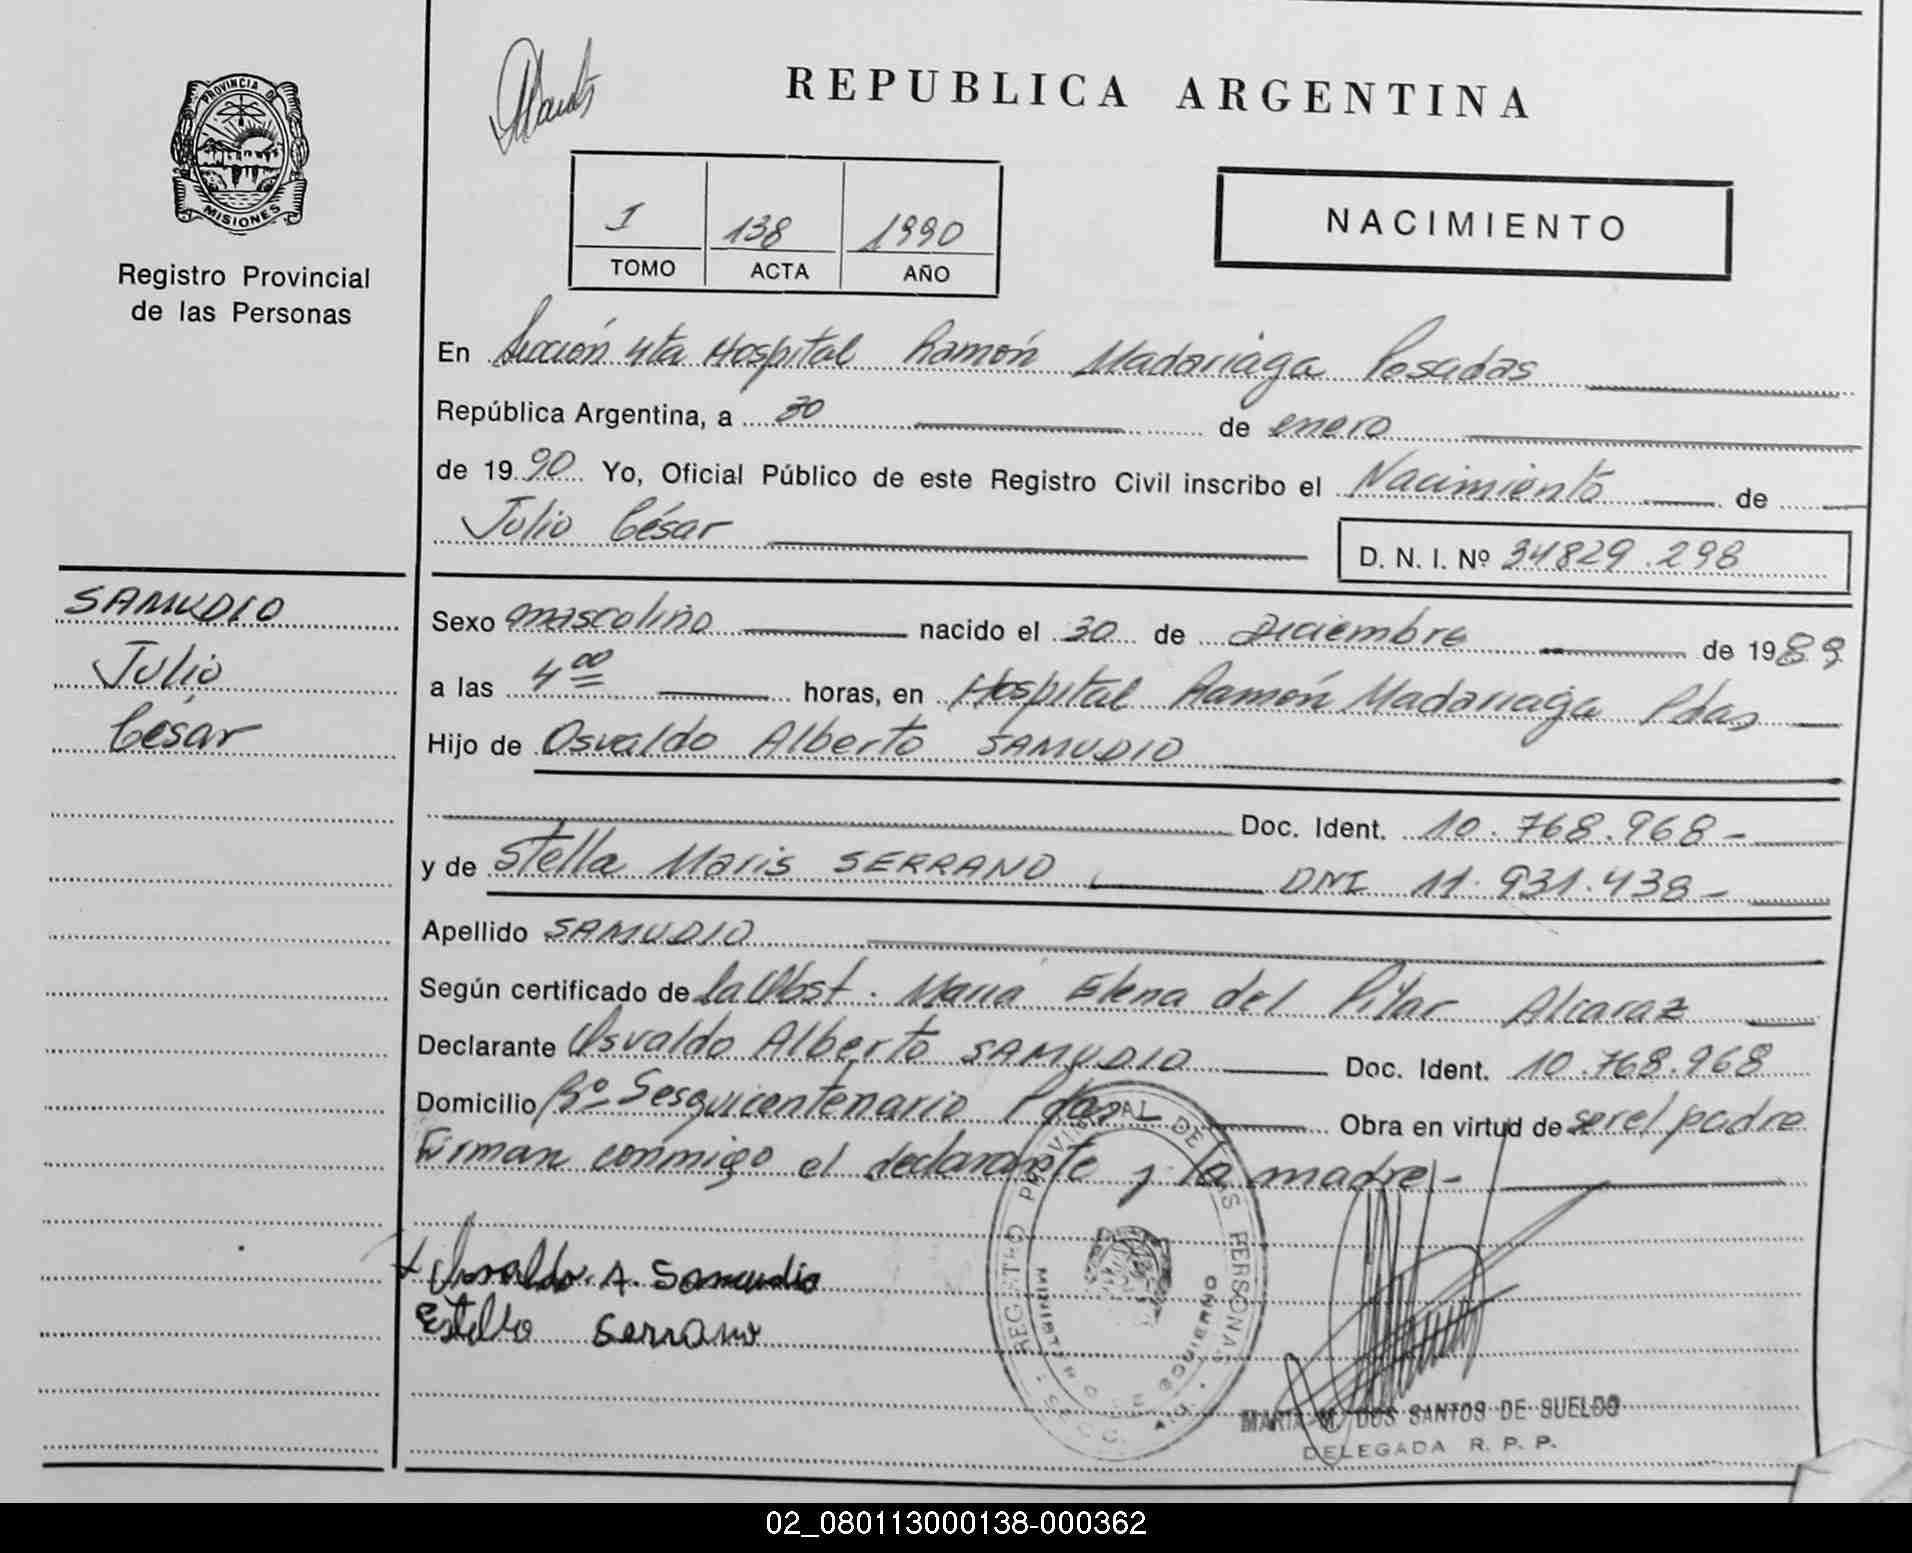 PROVINCIA DE
MISIONES
Registro Provincial
de las Personas
SAMUDIO
Julio
César
REPUBLICA ARGENTINA
I 138 1990
TOMO ACTA AÑO
NACIMIENTO
En Sección 4ta Hospital Ramón Madariaga Posadas
República Argentina, a 30 de enero
de 1990 Yo, Oficial Público de este Registro Civil inscribo el Nacimiento de
Julio César D. N. I. Nº 34829.298
Sexo masculino nacido el 30 de Diciembre de 1989
a las 4 00 horas, en Hospital Ramón Madariaga Pdas
Hijo de Osvaldo Alberto SAMUDIO
Doc. Ident. 10.768.968-
y de Stella Maris SERRANO DNI 11.931.438-
Apellido SAMUDIO
Según certificado de la Obst. Maria Elena del Pilar Alcaraz
Declarante Osvaldo Alberto SAMUDIO Doc. Ident. 10.768.968
Domicilio Bº Sesquicentenario Pdas Obra en virtud de ser el padre
Firman conmigo el declarante y la madre.-
REGISTRO PROVINCIAL DE LAS PERSONAS
Osvaldo A. Samudio
Estella Serrano
MARIA M. DOS SANTOS DE SUELDO
DELEGADA R. P. P.
02_080113000138-000362